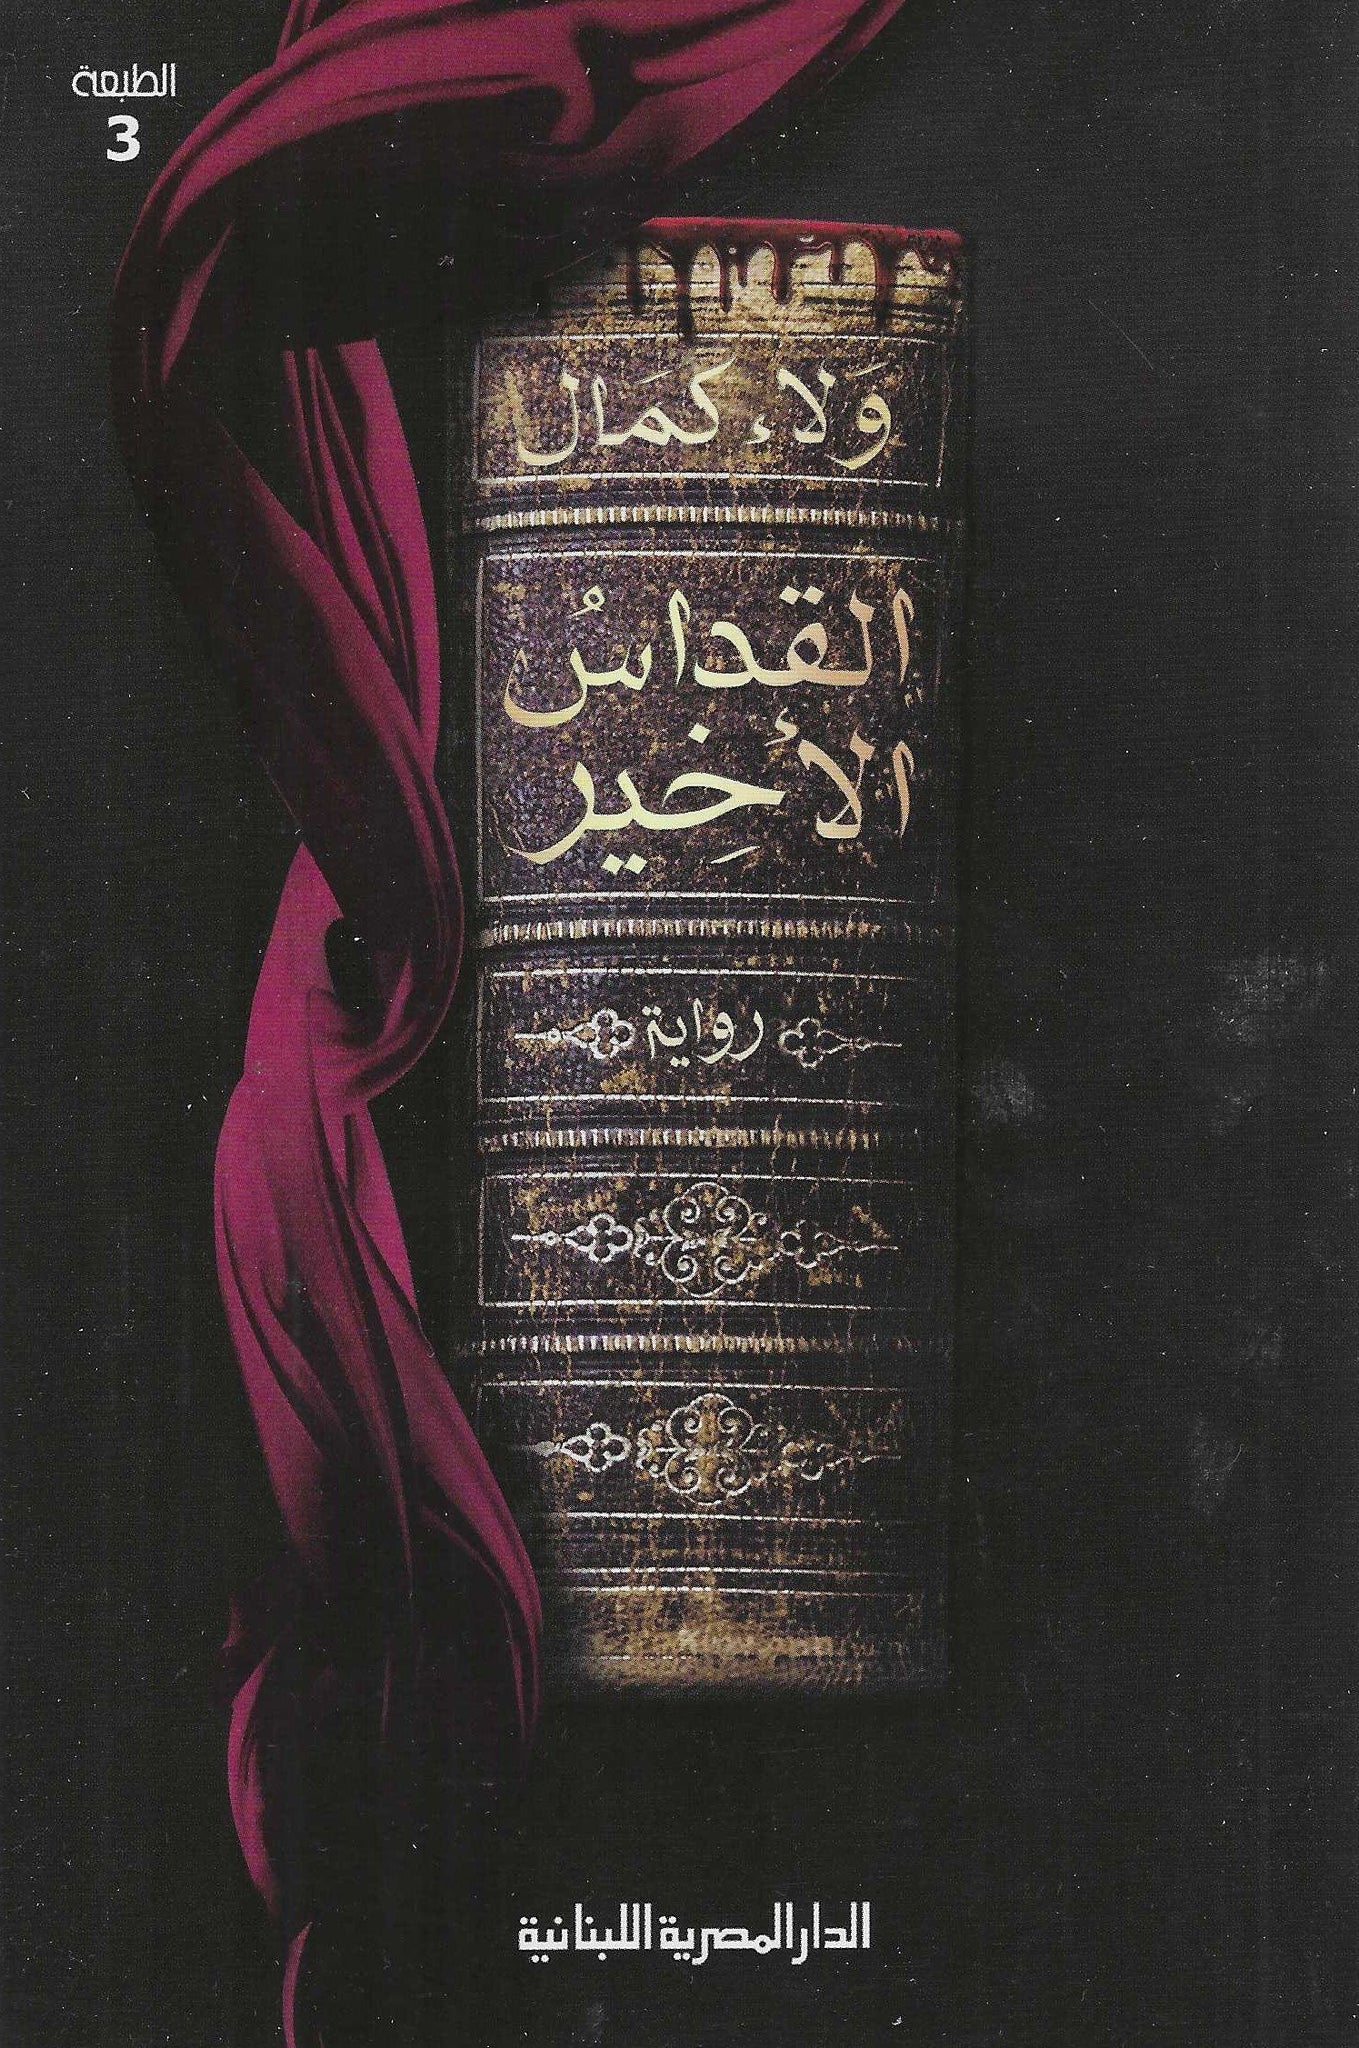 الطبعة
3
وَلاء كمَال
القداسُ
الأخِير
رواية
الدار المصرية اللبنانية